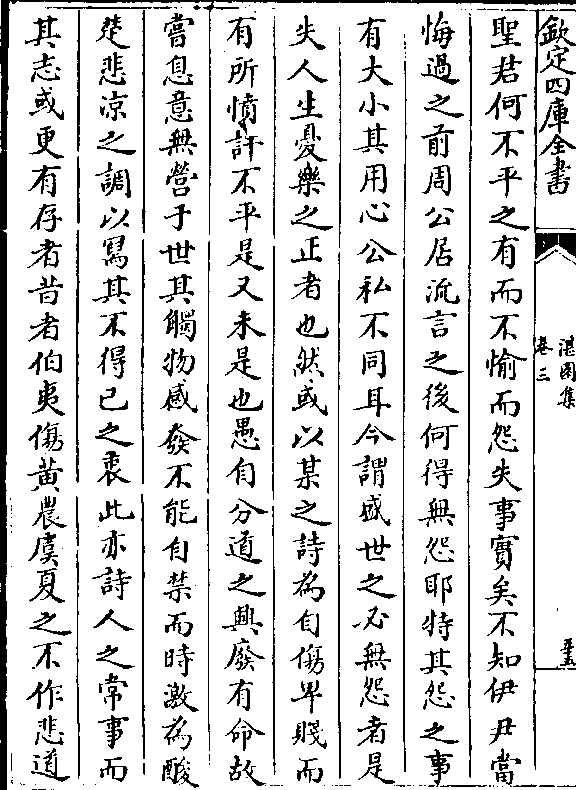 欽定四庫全書
湛園集
卷三
聖君何不平之有而不愉而怨失事實矣不知伊尹當
悔過之前周公居流言之後何得無怨耶特其怨之事
有大小其用心公私不同耳今謂盛世之必無怨者是
失人生憂樂之正者也然或以某之詩為自傷卑賤而
有所憤訐不平是又未是也愚自分道之興廢有命故
嘗息意無營于世其觸物感發不能自禁而時激為酸
楚悲凉之調以寫其不得已之衷此亦詩人之常事而
其志或更有存者昔者伯夷傷黄農虞夏之不作悲道